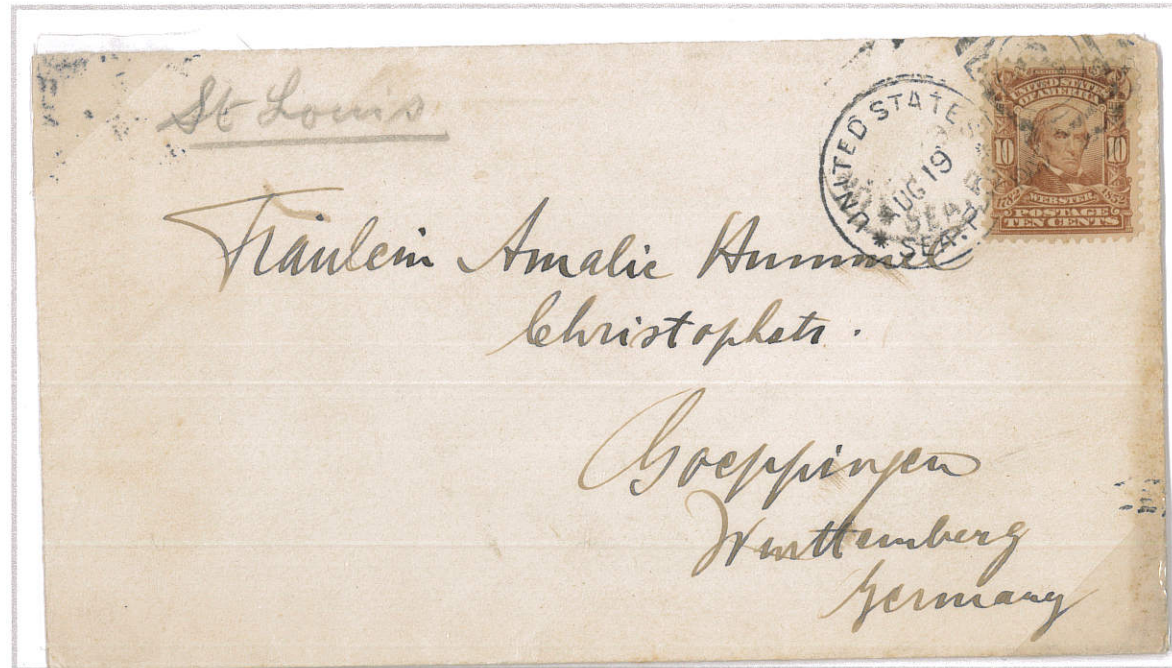 St Louis
UNITED STATES
AUG 19
SEA
UNITED STATES
OF AMERICA
10 10
WEBSTER 1852
POSTAGE
TEN CENTS
Fräulein Amalie Hummel
Christophstr.
Goeppingen
Württemberg
Germany